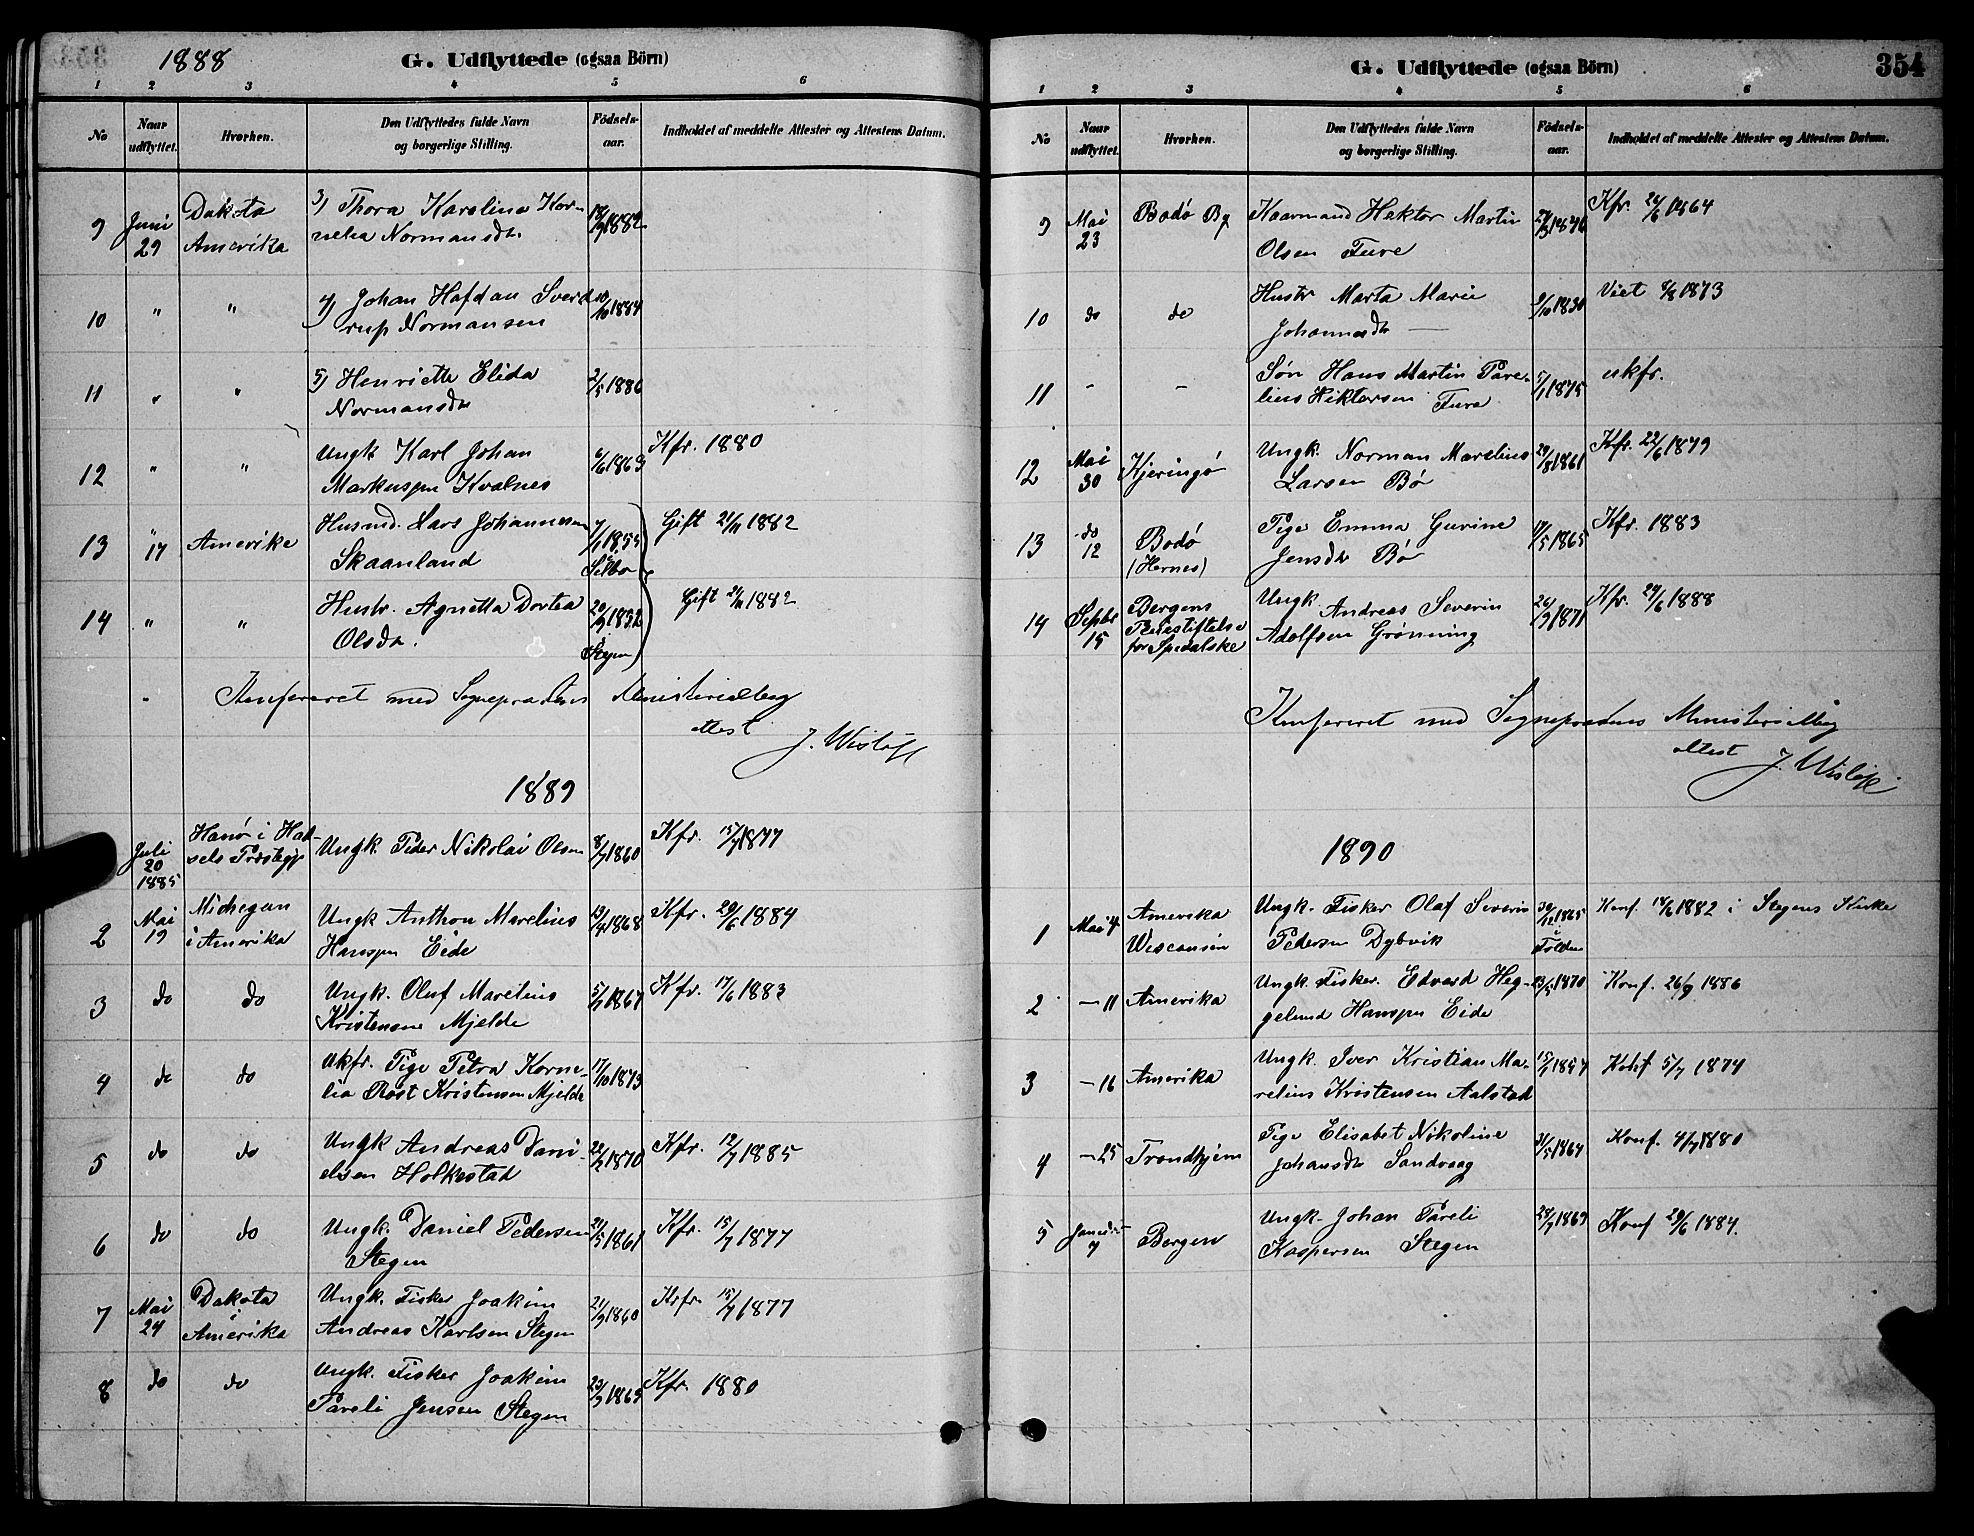 1888
G. Udflyttede (ogsaa Börn)
1 2 3 4 5 6
No
Naar udflyttet.
Hvorhen.
Den Udflyttedes fulde Navn og borgerlige Stilling.
Födsels-aar.
Indholdet af meddelte Attester og Attestens Datum.
9 Juni Dakota 3) Thora Karolina Kor-
29 Amerika nelia Normansdtr 18/9 1882
10 " " 4) Johan Hafdan Sverd-
rup Normansen 10/10 1884
11 " " 5) Henriette Elida 2/5 1886
Normansdtr
12 " " Ungk Karl Johan 6/6 1863 Kfr. 1880
Markussen Kvalnes
13 " 17 Amerika Husmd. Lars Johannesen 7/1 1855 Gift 21/11 1882
Skaanland Selbo
14 " " Hustr. Agnetta Dortea 20/9 1832 Gift 21/11 1882
Olsdtr. Stegen
Konfereret med Sogneprestens Ministerialbog
attest
J. Wisløff
1889
Juli Hanø i Had- Ungk. Peder Nikolai Olsen 8/7 1860 Kfr. 15/7 1877
20 sels Præstegj
1885
2 Mai Michegan Ungk Anthon Marelius 13/4 1868 Kfr. 29/6 1884
19 i Amerika Hanssen Eide
3 do do Ungk. Oluf Marelius 5/7 1867 Kfr. 17/6 1883
Kristensen Mjelde
4 do do Ukfr. Pige Petra Korne- 17/10 1873
lia Røst Kristensen Mjelde
5 do do Ungk Andreas Dani- 22/2 1870 Kfr. 12/7 1885
elsen Holkestad
6 do do Ungk. Daniel Pedersen 21/5 1861 Kfr. 15/7 1877
Stegen
7 Mai Dakota Ungk. Fisker Joakim 21/9 1860 Kfr. 15/7 1877
24 i Amerika Andreas Karlsen Stegen
8 do do Ungk. Fisker Joakim 23/3 1863 Kfr. 1880
Pareli Jensen Stegen
G. Udflyttede (ogsaa Börn)
354
1 2 3 4 5 6
No
Naar udflyttet.
Hvorhen.
Den Udflyttedes fulde Navn og borgerlige Stilling.
Födsels-aar.
Indholdet af meddelte Attester og Attestens Datum.
9 Mai Bodø By Kaarmand Hektor Martin Kfr. 24/6 1864
23 Olsen Fure
10 do do Hustr Marta Marie 9/10 1830 Viet 3/8 1873
Johannesdtr —
11 - - Søn Hans Martin Pare- 5/1 1875 ukfr.
lius Hektorsen Fure
12 Mai Kjeringø Ungk. Norman Marelius 29/8 1861 Kfr. 22/6 1879
30 Larsen Bø
13 do Bodø Pige Emma Gurine 17/5 1865 Kfr. 1883
12 (Hernes) Jensdtr Bø
14 Septbr Bergens Ungk. Andreas Severin 26/9 1871 Kfr. 24/6 1888
15 Pleiestiftelse Adolfsen Grønning
for Spedalske
Konfereret med Sogneprestens Ministerialbog
attest
J. Wisløff
1890
1 Mai 4 Amerika Ungk. Fisker Olaf Severin 30/12 1865 Konf. 1882 i Stegens Kirke
Wisconsin Pedersen Dybvik Folden
2 — 11 Amerika Ungk Fisker. Edvard Heg- 23/2 1870 Konf. 26/9 1886
gelund Hanssen Eide
3 — 16 Amerika Ungk. Iver Kristian Ma- Konf 5/7 1874
relius Kristensen Aalstad
4 — 25 Trondhjem Pige Elisabet Nikoline 31/5 1864 Konf. 4/7 1880
Johansdtr Sandvaag
5 Januar Bergen Ungk. Johan Pareli 28/7 1869 Konf 29/6 1884.
7 Kaspersen Stegen